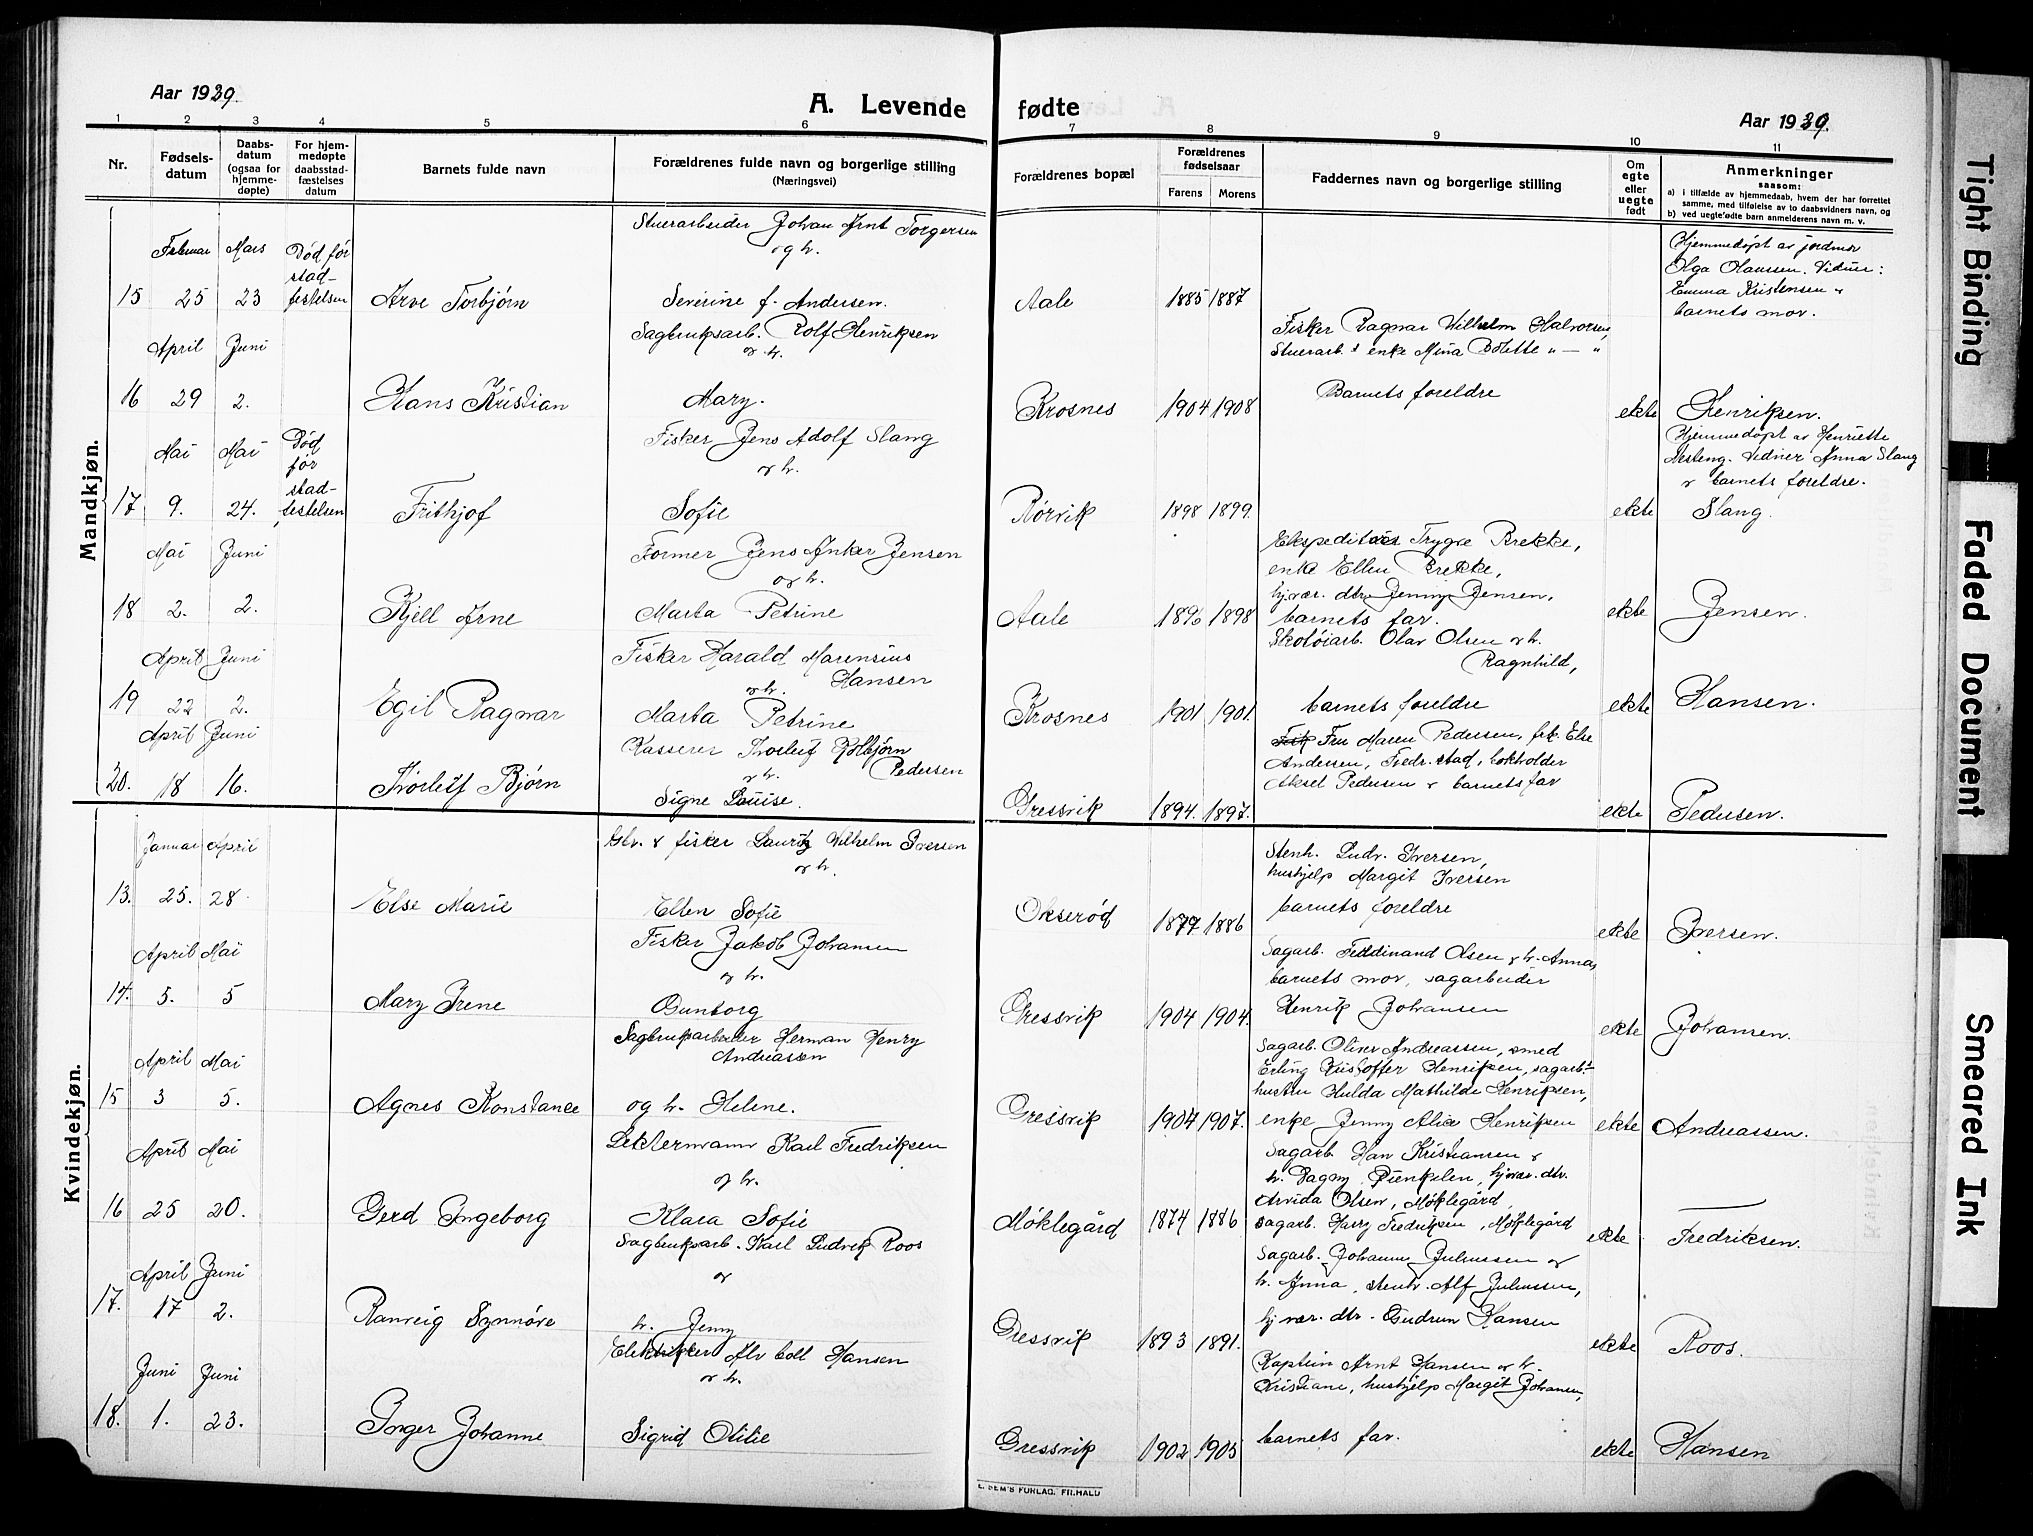 Aar 1929.
A. Levende fødte
Aar 1929.
1 2 3 4 5 6 7 8 9 10 11
Nr.
Fødsels-
datum
Daabs-
datum
(ogsaa for
hjemme-
døpte)
For hjem-
medøpte
daabsstad-
fæstelses
datum
Barnets fulde navn
Forældrenes fulde navn og borgerlige stilling
(Næringsvei)
Forældrenes bopæl
Forældrenes
fødselsaar
Farens Morens
Faddernes navn og borgerlige stilling
Om
egte
eller
uegte
født
Anmerkninger
saasom:
a) i tilfælde av hjemmedaab, hvem der har forrettet
samme, med tilføielse av to daabsvidners navn, og
b) ved uegtefødte barn anmelderens navn m. v.
Mandkjøn.
Februar Mars Død før
stad-
15 25 23 festelsen Arve Torbjørn
Stuerarbeider Johan Arnt Torgersen
og h.
Severine f. Andersen.
Aale 1885 1887
Hjemmedøpt av jordmor
Olga Olaussen. Vidner:
Emma Kristensen &
barnets mor.
April Juni
16 29 2. Hans Kristian
Sagbruksarb. Rolf Henriksen
& h.
Mary.
Krosnes 1904 1908
Fisker Ragnar Wilhelm Halvorsen,
Stuerarb.s enke Mina Bolette " — "
Barnets foreldre
ekte Henriksen.
Mai Mai Død
før
stad-
17 9. 24. festelsen Frithjof
Fisker Jens Adolf Slang
& h.
Sofie
Rørvik 1898 1899.
ekte
Hjemmedøpt av Henriette
Vidner Anna Slang
& barnets foreldre.
Slang.
Mai Juni
18 2. 2. Kjell Arne
Former Jens Anker Jensen
og h.
Marta Petrine
Aale 1896 1898
Ekspeditør Trygve Brekke,
enke Ellen Brekke,
hjvær. dtr. Jenny Jensen,
barnets far.
ekte Jensen.
April Juni
19 22 2. Egil Ragnar
Fisker Harald Marensius
Hansen
& h.
Marta Petrine
Krosnes 1901 1901.
Skotøiarb. Olav Olsen & h.
Ragnhild,
barnets foreldre
ekte Hansen.
April Juni
20. 18 16. Thorleif Bjørn
Kasserer Thorleif Kolbjørn
Pedersen
& h.
Signe Louise.
Gressvik 1894. 1897.
Fru Maren Pedersen, frk. Else
Andersen, Fredr.stad, bokholder
Aksel Pedersen & barnets far
ekte Pedersen.
Kvindekjøn.
Januar April
13. 25. 28. Else Marie
Gbr. & fisker Lauritz Wilhelm Iversen
& h.
Ellen Sofie
Okserød 1877 1886
Stenh. Ludv. Iversen,
hushjelp Margit Iversen
barnets foreldre
ekte Iversen.
April Mai
14. 5. 5 Mary Irene
Fisker Jakob Johansen
& h.
Gunborg
Gressvik 1904 1904.
Sagarb. Ferdinand Olsen & h. Anna,
barnets mor, sagarbeider
Henrik Johansen
ekte Johansen.
April Mai
15 3 5. Agnes Konstance
Sagbruksarbeider Herman Henry
Andreassen
og h. Helene.
Gressvik 1904 1907.
Sagarb. Oliver Andreassen, smed
Erling Kristoffer Henriksen, sagarb.s
hustru Hulda Mathilde Henriksen,
enke Jenny Alice Henriksen
ekte Andreassen.
April Mai
16 25 20. Gerd Ingeborg
Lektermann Karl Fredriksen
og h.
Klara Sofie
Møklegård 1874 1886
Sagarb. Han Kristiansen &
h. Dagny, hjvær. dtr.
Arvida Olsen, Møklegård,
sagarb. Harry Fredriksen, Møklegård
ekte Fredriksen.
April Juni
17. 17 2. Ranveig Synnøve
Sagbruksarb. Karl Ludvik Roos
og
h. Jenny
Gressvik 1893 1891.
Sagarb. Johannes Juliussen &
h. Anna, stenh. Alf Juliussen,
hjvær. dtr. Gudrun Hansen
ekte Roos.
Juni Juni
18. 1. 23. Inger Johanne
Elektriker Alv Coll Hansen
& h.
Sigrid Otilie
Gressvik 1902 1905
Kaptein Arnt Hansen & h.
Kristiane, hushjelp Margit Johansen,
barnets far.
ekte Hansen
E. SEM'S FORLAG. FR.HALD
Tight Binding
Faded Document
Smeared Ink